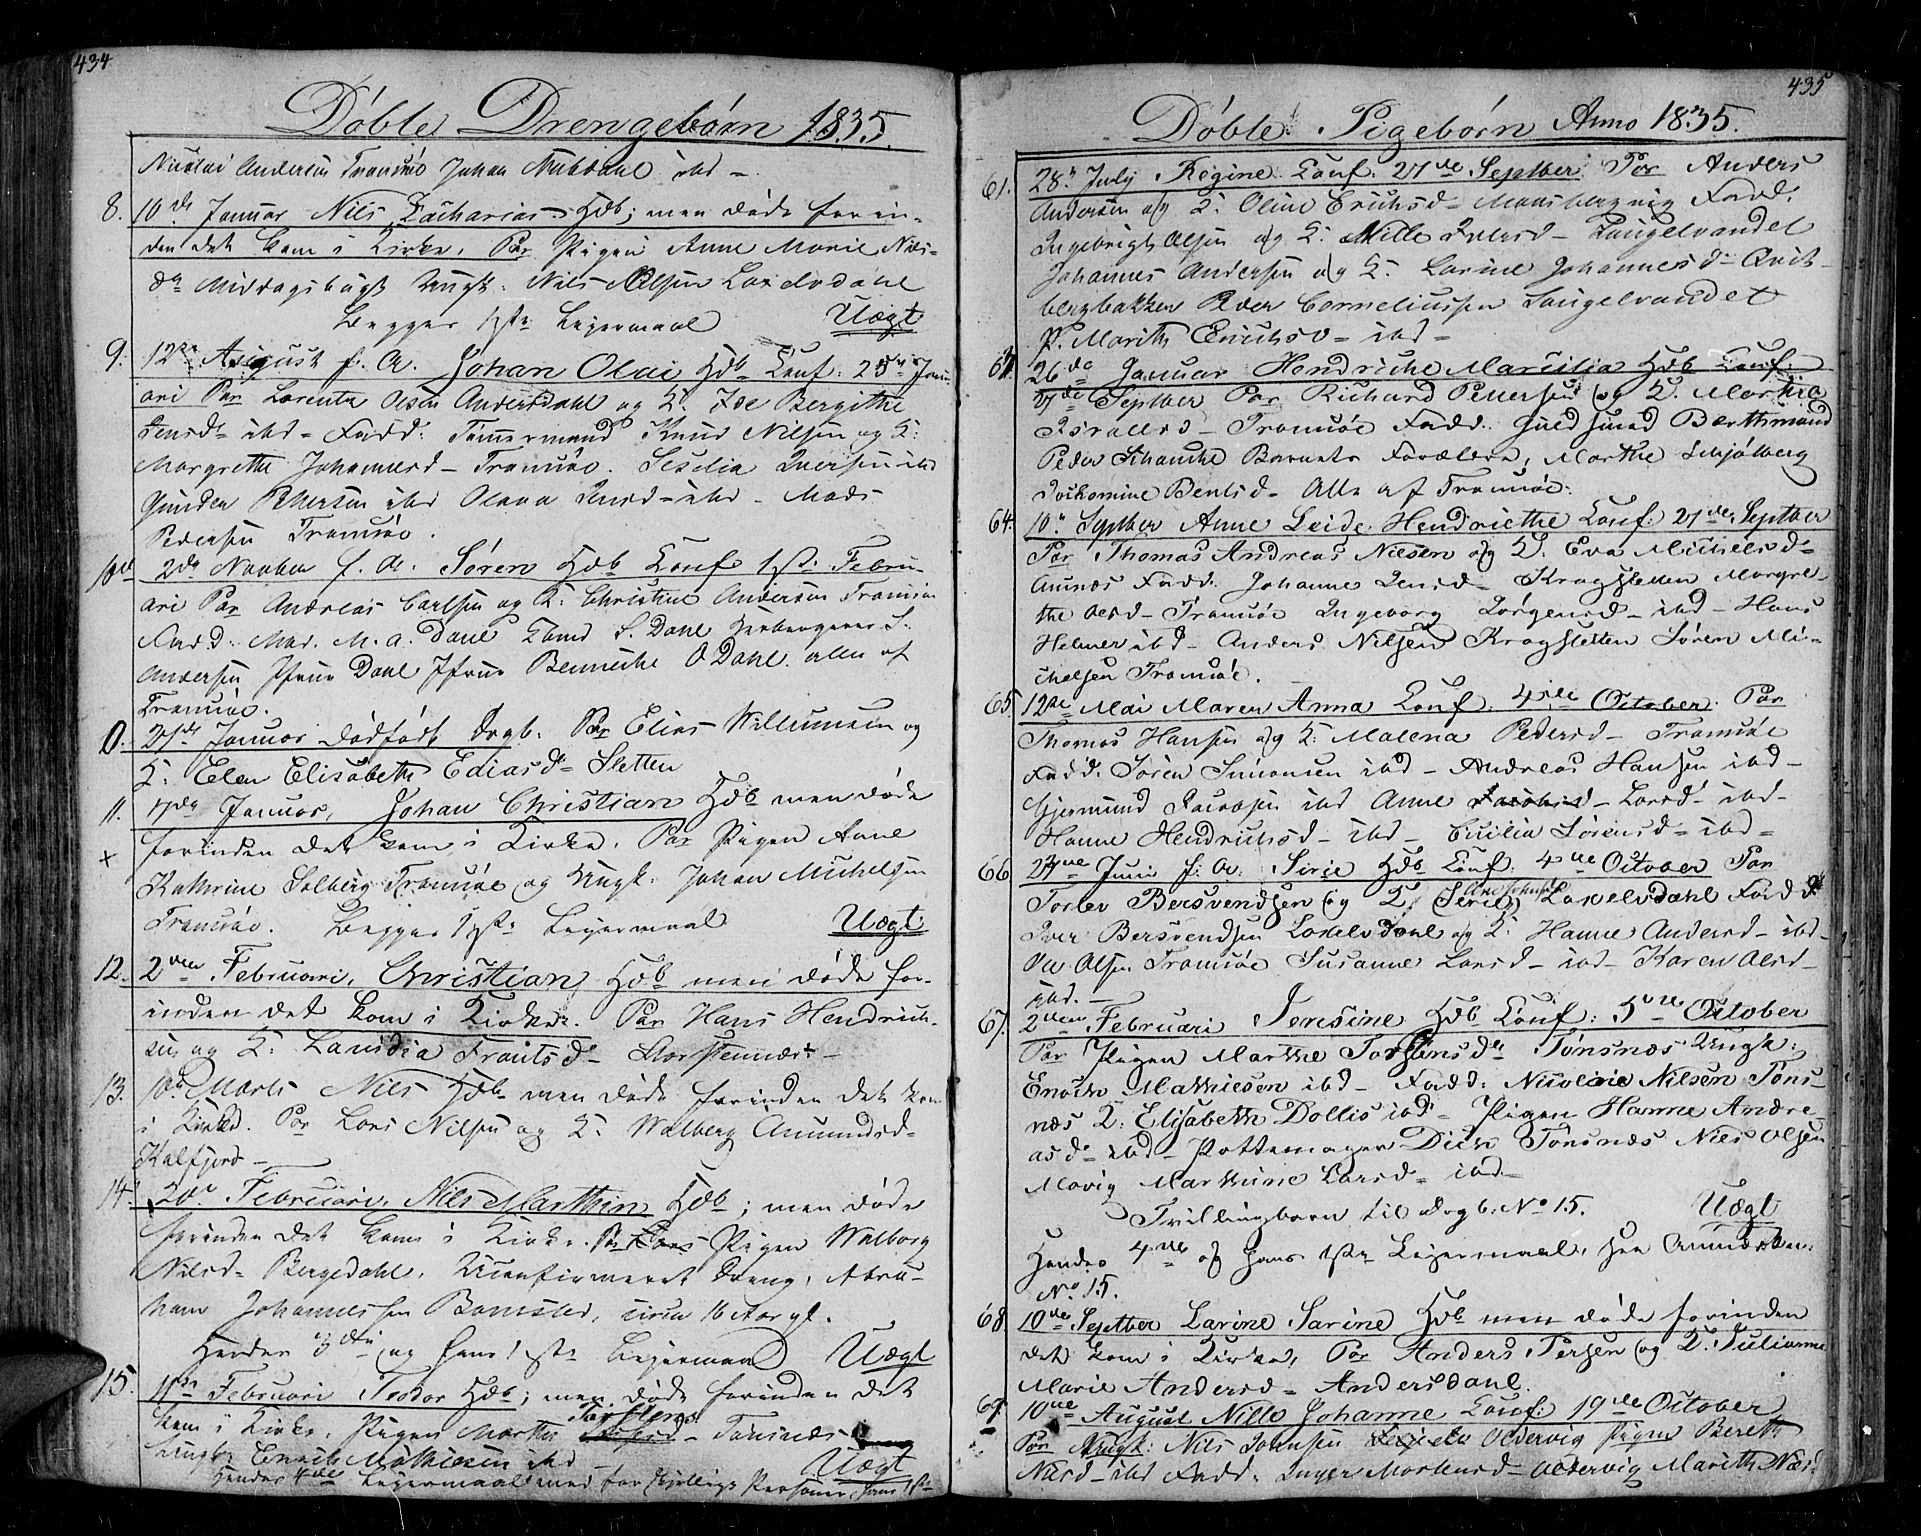 434
Døbte Drengebørn 1835.
Nicolai Andersen Tromsøe Johan Nubdahl ibd –
8. 10de Januar Nils Zacharias Hdb; men døde forin-
den det kom i Kirke. Par Pigen Anne Marie Nils-
da Middagsbugt Ungk: Nils Olsen Laxelvdahl
Begges 1ste Leiermaal Uægt
9. 12te August f. A. Johan Olai Hdb Conf: 25de Janu-
ari Par Lorents Olsen Andersdahl og K. Ide Bergithe
Jensdr ibd – Fadd: Tømmermand Knud Nilsen og K:
Margrethe Johannesd – Tromsøe. Sesilia Iversen ibd
Petersen ibd Olava Jensd – ibd – Mads
Pedersen Tromsøe.
10. 2de Novber f. A. Søren Hdb Conf 1ste Febru-
ari Par Andreas Carlsen og K: Christine Andersen Tromsøe
Fadd: Mad. M. A. Dahl S. Dahl S.
Andersen Jfrue Dahl Jfrue Benniche O Dahl alle af
Tromsøe.
0. 27de Januar dødfødt Drgb. Par Elias Willumsen og
K: Elen Elisabeth Ediasd – Sletten
11. 17de Januar, Johan Christian Hdb men døde
× forinden det kom i Kirke. Par Pigen Anne
Kathrine Solberg Tromsøe og Ungk: Johan Michelsen
Tromsøe. Begges 1ste Leiermaal Uægt
12. 2den Februari, Christian Hdb men døde for-
inden det kom i Kirke. Par Hans Hendrich-
sen og K: Frantsd –
13. 10de Marts Nils Hdb men døde forinden det kom
i Kirke. Par Lars Nilsen og K: Walberg Amundsd –
Kalfjord –
14. 20de Februari. Nils Marthin Hdb; men døde
forinden det kom i Kirke. Par Lars Pigen Walborg
Nilsd – Bergsdahl. Uconfirmeret Dreng, Abra-
ham Johannessen Bomsted, circa 16 Aar gl.
Hendes 3die og hans 1ste Leiermaal Uægt
15. 11te Februari Teodor Hdb; men døde forinden det
kom i Kirke. Pigen Marthe Torstens – Tønsnæs
Ungk: Enoch Mathiesen ibd Uægt
Hendes 4de Leiermaal med forskjellige Personer, hans 1ste

435
Døbte Pigebørn Anno 1835.
61. 28de July Regine Conf. 27de Septber Par Anders
Andersen og K: Oline Erichsd – Maasbergvig Fadd.
Ingebrigt Olsen og K: Mille Iversd – Laugelvandet
Johannes Andersen og K. Larine Johannesd – Qvit-
bergbakken Peder Corneliussen Laugelvandet
P. Marith Erichsd – ibd –
26de Januar Hendriche Marselia Hdb Conf:
27de Septber Par Richard Pettersen og K. Martha
Israelsd – Tromsøe Fadd. Guldsmed Barthmand
Peder Schanche Barnets Forældre, Marthe Schjølberg
Jochomine Bentsd – Alle af Tromsøe.
64. 10de Septber Anne Leide Hendriethe Conf: 27de Septber
Par Thomas Andreas Nilsen og K. Eva Michelsd –
Aunæs Fadd. Johanne Jensd – Krogsletten Margre-
the Olsd – Tromsøe Ingeborg Jørgensd – ibd – Hans
Helmer ibd – Anders Nilsen Krogsletten Søren Mi-
chelsen Tromsøe.
65. 12te Mai Maren Anna Conf. 4de October. Par
Thomas Hansen og K: Malena Pedersd – Tromsøe
Fadd: Søren Simonsen ibd – Andreas Hansen ibd –
Gjermund Jacobsen ibd Anne Jacobsd – Larsd – ibd –
Hanne Hendrichsd – ibd – Cicilia Sørensd – ibd –
66. 24de Juni f. A. Sirie Hdb Conf. 4de October Par
Torlev Bersvendsen og K. (Serie) Laxelvdahl Fadd
Iver Bersvendsen Laxelvdahl og K: Hanne Andersd – ibd –
Ole Olsen Tromsøe Susanne Larsd – ibd – Karen Olsd –
ibd. –
67. 2den Februari Jensine Hdb Conf: 5te October
Par Pigen Marthe Torstensdr Tønsnæs Ungk:
Enoch Mathiesen ibd – Fadd: Nicolaie Nilsen Tøns-
næs K: Elisabeth Dollis ibd – Pigen Hanne Andre-
asd – ibd – Pottemager Dick Tønsnæs Niels Olsen
Movig Marthine Larsd – ibd –
Tvillingbarn til Drgb. No 15. Uægt
Hendes 4de og hans 1ste Leiermaal, see Anmærkn:
No 15.
68. 10de Septber Larine Sarine Hdb men døde forinden
det kom i Kirke, Par Anders Persen og K. Julianne
Marie Andersd – Andersdahl.
69. 10de August Nille Johanne Conf: 19de October
Par Ungk: Nils Johnsen Oldervig Pigen Bereth
Nilsd – ibd Fadd: Inger Mortensd – Oldervig Marith Nilsd